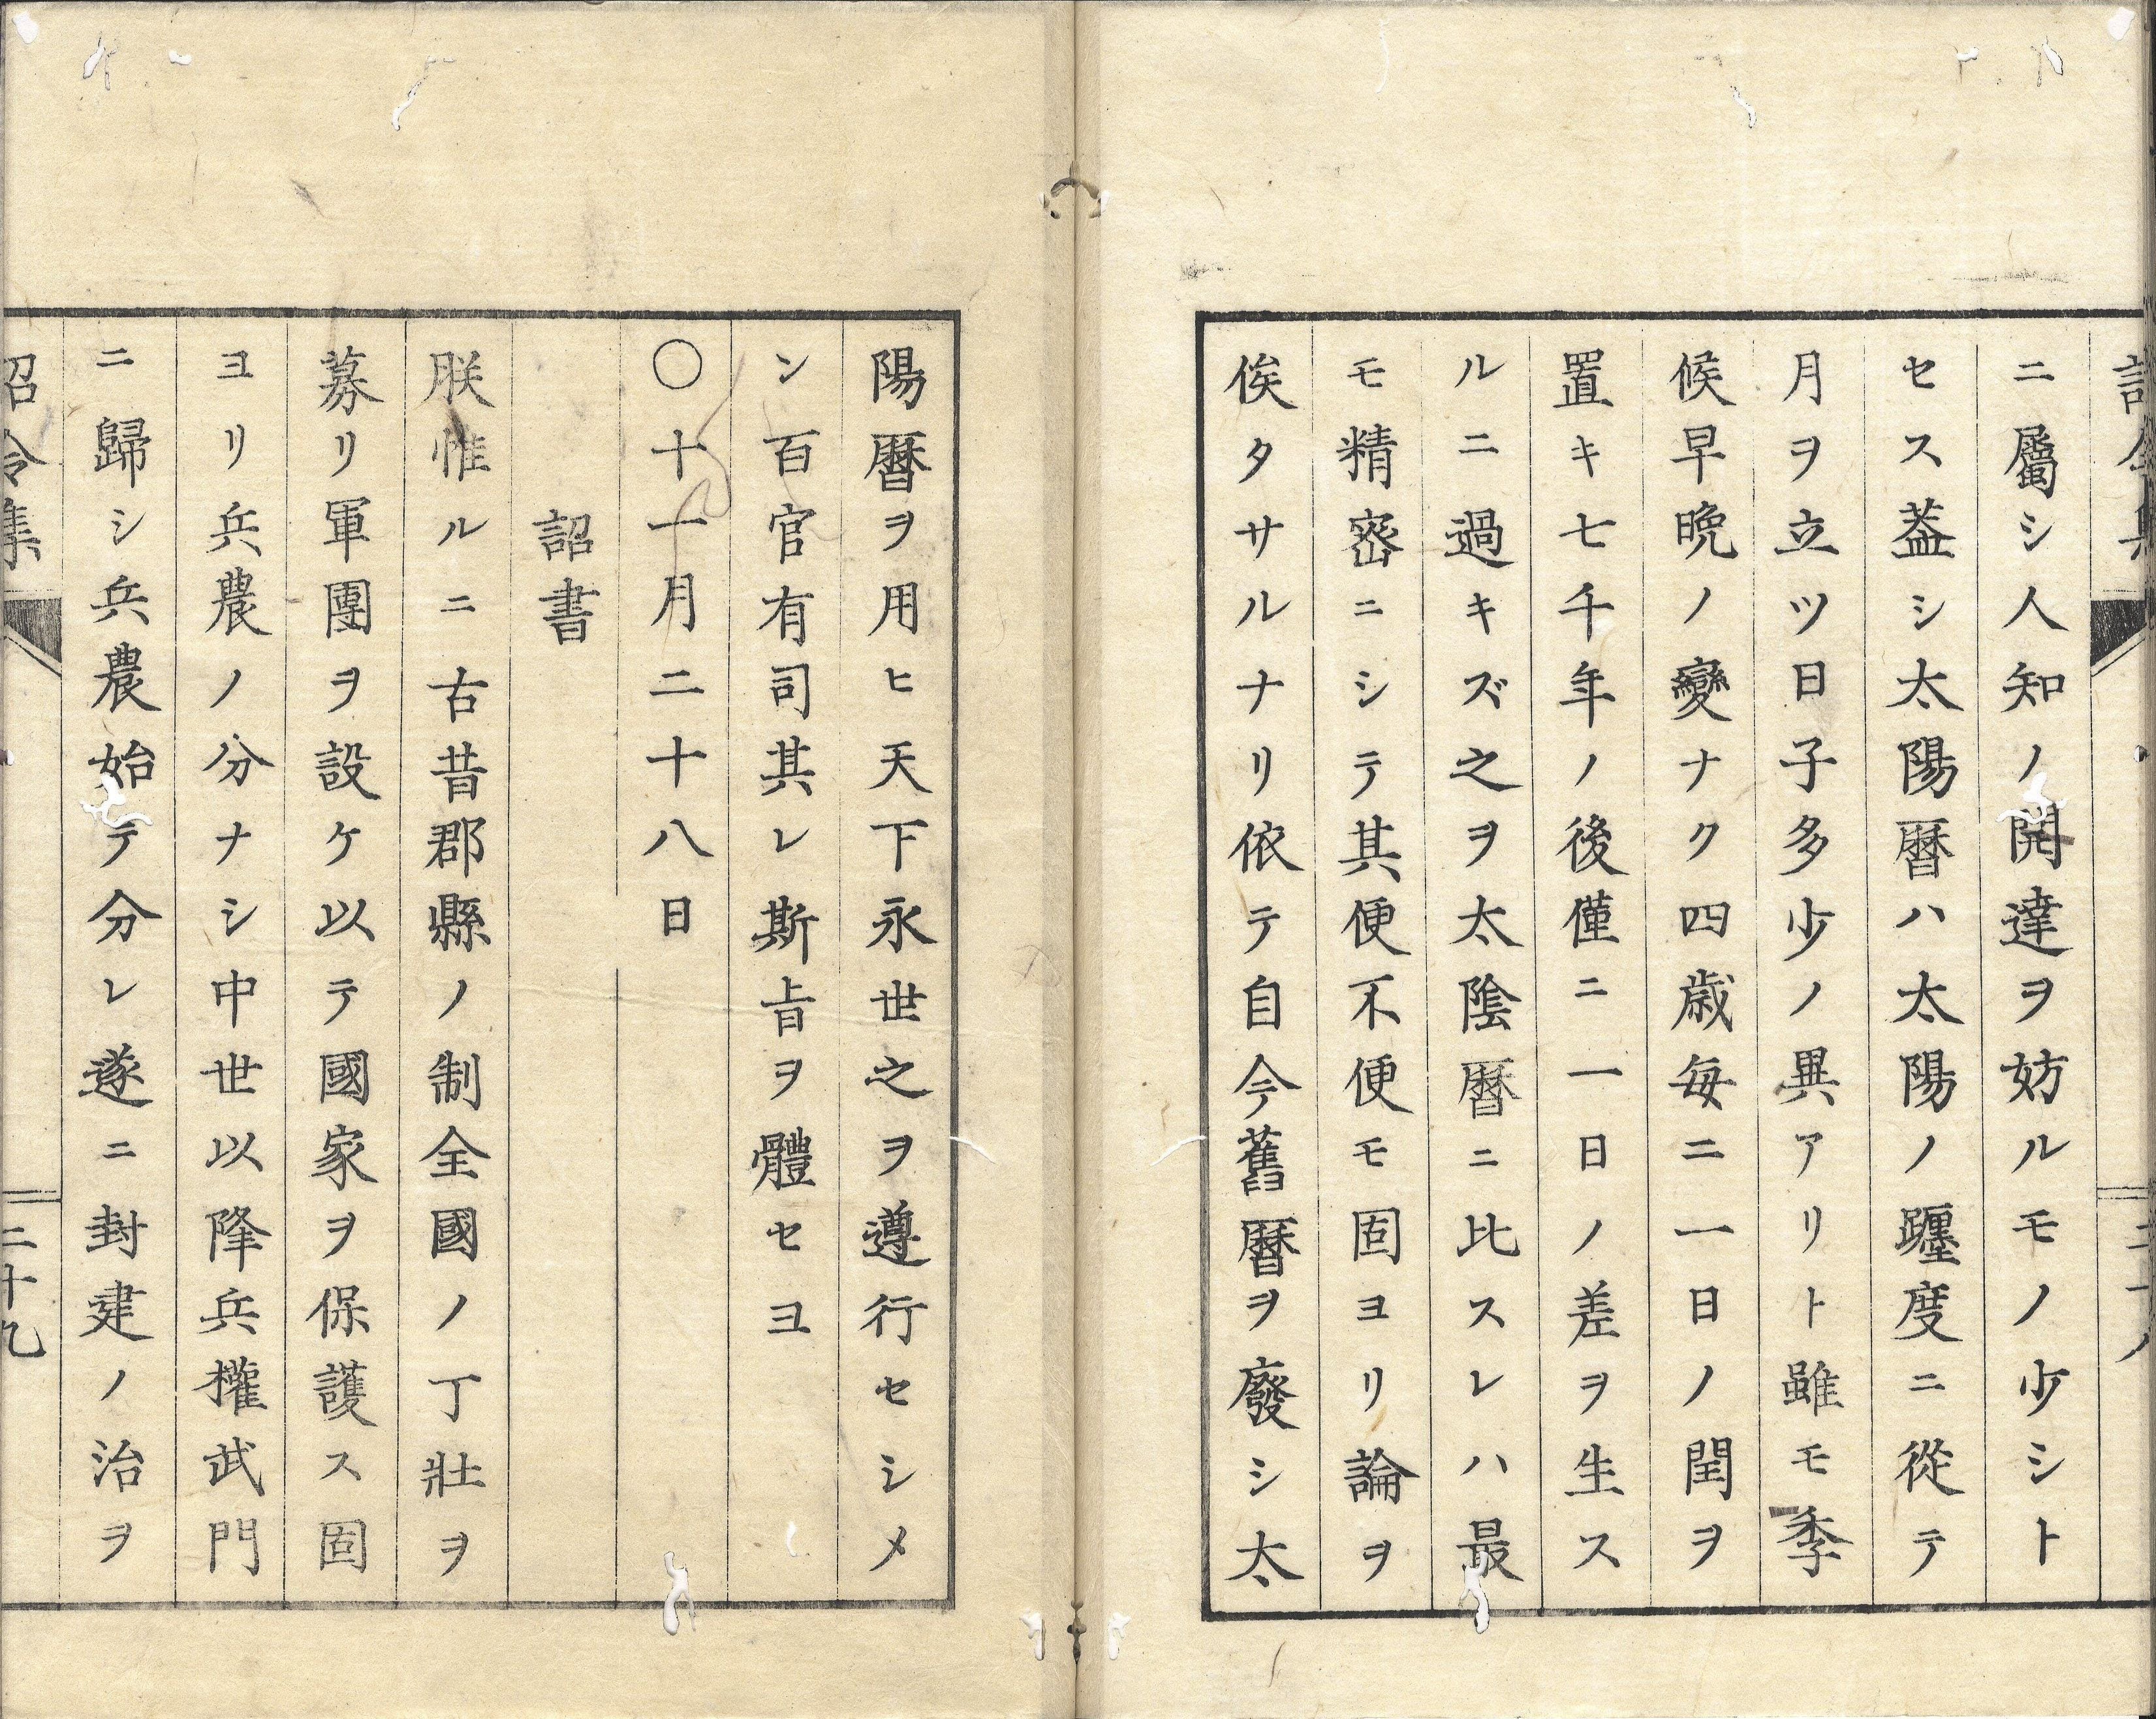 ニ屬シ人知ノ開達ヲ妨ルモノ少シト
セス葢シ太陽暦ハ太陽ノ躔度ニ從テ
月ヲ立ツ日子多少ノ異アリト雖モ季
候早晩ノ變ナク四歳毎ニ一日ノ閏ヲ
置キ七千年ノ後僅ニ一日ノ差ヲ生ス
ルニ過キズ之ヲ太陰暦ニ比スレハ最
モ精密ニシテ其便不便モ固ヨリ論ヲ
俟タサルナリ依テ自今舊暦ヲ廢シ太
陽暦ヲ用ヒ天下永世之ヲ遵行セシメ
ン百官有司其レ斯旨ヲ體セヨ
〇十一月二十八日
詔書
朕惟ルニ古昔郡縣ノ制全國ノ丁壯ヲ
募リ軍團ヲ設ケ以テ國家ヲ保護ス固
ヨリ兵農ノ分ナシ中世以降兵權武門
ニ歸シ兵農始テ分レ遂ニ封建ノ治ヲ
詔令集
二十九